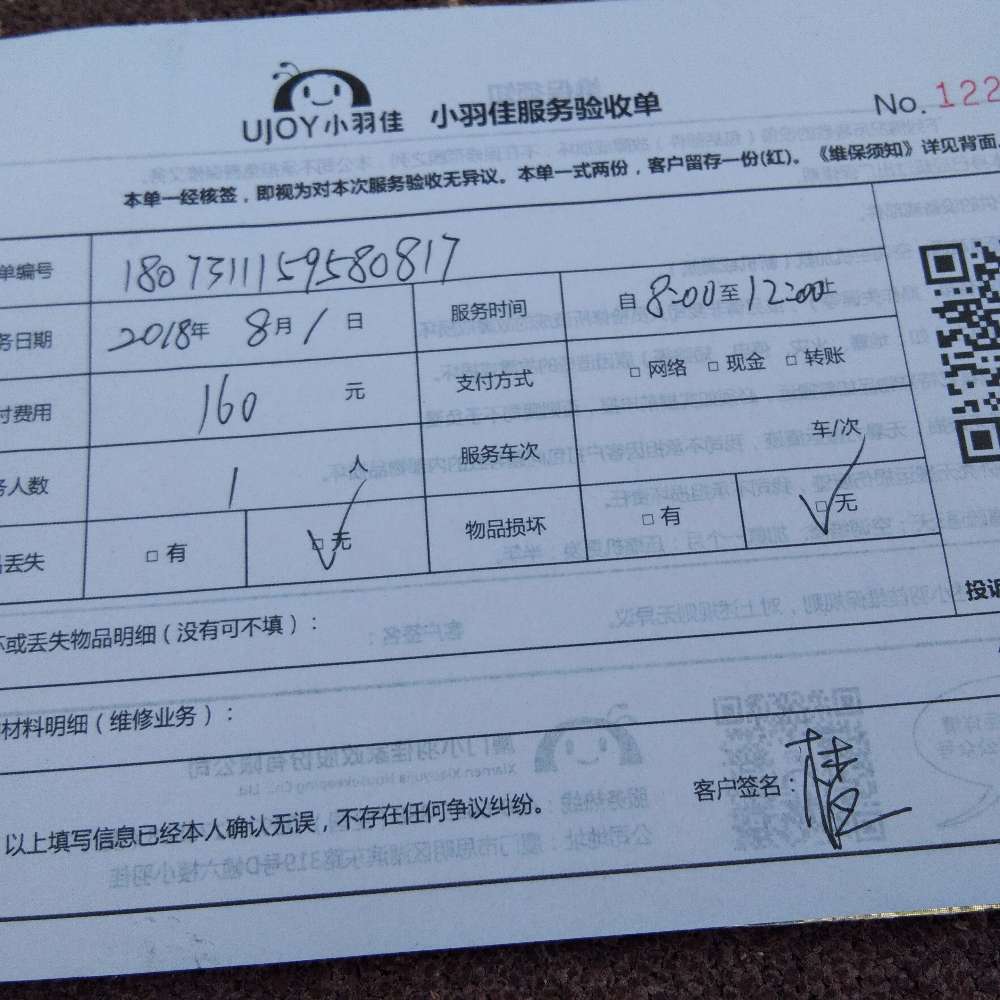 UJOY小羽佳 小羽佳服务验收单 No. 122
本单一经核签，即视为对本次服务验收无异议。本单一式两份，客户留存一份(红)。《维保须知》详见背面。
单编号 180731115958 0817
务日期 2018年 8月 1日 服务时间 自8:00至12:00止
付费用 160 元 支付方式 □ 网络 □ 现金 □ 转账
务人数 1 人 服务车次 车/次
丢失 □ 有 □ 无 物品损坏 □ 有 □ 无
投诉
坏或丢失物品明细（没有可不填）：
材料明细（维修业务）：
以上填写信息已经本人确认无误，不存在任何争议纠纷。 客户签名：